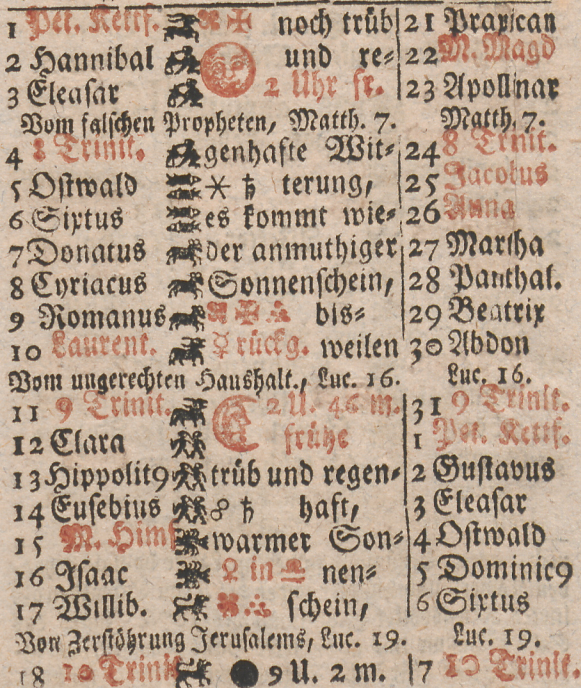 1 Pet. Kettf. noch trüb 21 Praxican
2 Hannibal und re⸗ 22 M. Magd
3 Eleasar 2 Uhr fr. 23 Apollinar
Vom falschen Propheten, Matth. 7. Matth. 7.
4 8 Trinit. genhafte Wit⸗ 24 8 Trinit.
5 Oßwald ⚹ ♄ terung, 25 Jacobus
6 Sixtus es kommt wie⸗ 26 Anna
7 Donatus der anmuthiger 27 Martha
8 Cyriacus Sonnenschein, 28 Panthal.
9 Romanus bis⸗ 29 Beatrix
10 Laurent. ☿ rückg. weilen 30 Abdon
Vom ungerechten Haushalt., Luc. 16. Luc. 16.
11 9 Trinit. 2 U. 46 m. 31 9 Trinit.
12 Clara frühe 1 Pet. Kettf.
13 Hippolit9 trüb und regen⸗ 2 Gustavus
14 Eusebius ☍ ♄ haft, 3 Eleasar
15 M. Himf warmer Son⸗ 4 Oßwald
16 Isaac ♀ in ♎ nen⸗ 5 Dominic9
17 Willib. schein, 6 Sixtus
Von Zerstöhrung Jerusalems, Luc. 19. Luc. 19.
18 10 Trinit ● 9 U. 2 m. 7 10 Trinit.